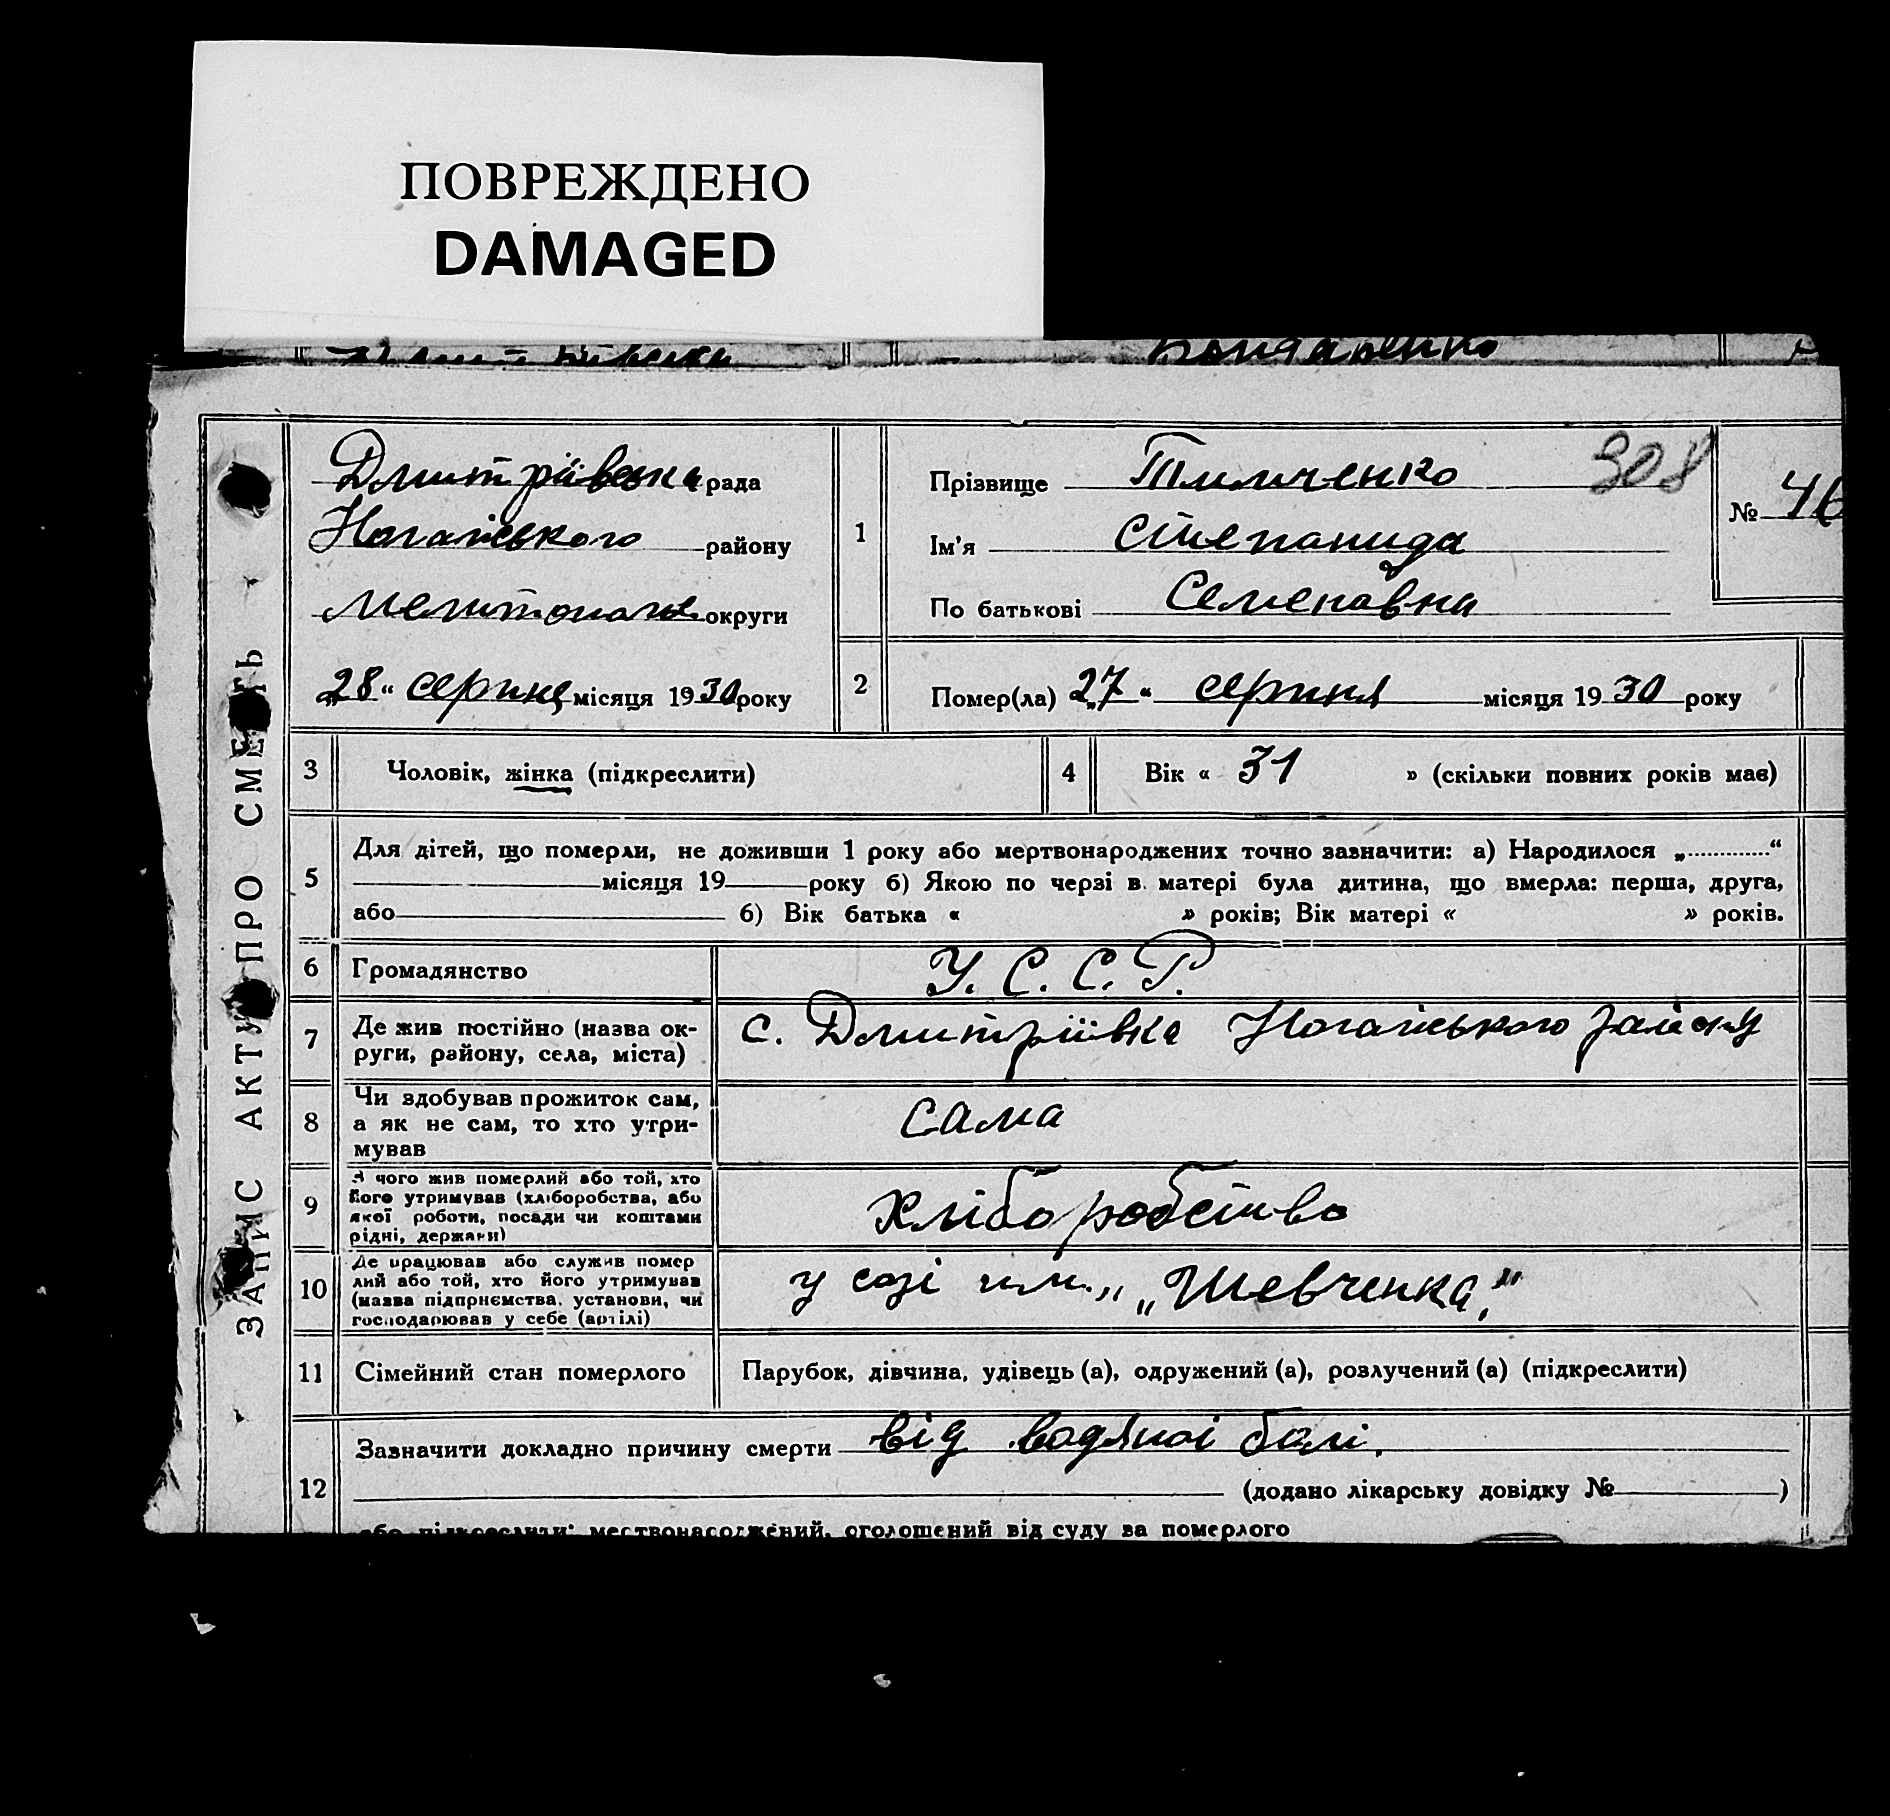 ПОВРЕЖДЕНО
DAMAGED
Бондаренко
ЗАПИС АКТУ ПРО СМЕРТЬ
Дмитріївська рада
Ногайського району
округи
„28“ серпня місяця 1930 року
1
Прізвище Тимченко 308
Ім'я Степанида
По батькові Семенавна
№ 46
2
Помер(ла) „27“ серпня місяця 1930 року
3 Чоловік, жінка (підкреслити)
4 Вік « 31 » (скільки повних років має)
5
Для дітей, що померли, не доживши 1 року або мертвонароджених точно зазначити: а) Народилося „ “
місяця 19 року б) Якою по черзі в матері була дитина, що вмерла: перша, друга,
або б) Вік батька « » років; Вік матері « » років.
6 Громадянство У. С. С. Р.
7
Де жив постійно (назва ок-
руги, району, села, міста)
с. Дмитріївка Ногайського району
8
Чи здобував прожиток сам,
а як не сам, то хто утри-
мував
сама
9
З чого жив померлий або той, хто
його утримував (хліборобства, або
якої роботи, посади чи коштами
рідні, держави)
хліборобство
10
Де працював або служив помер
лий або той, хто його утримував
(назва підприємства, установи, чи
господарював у себе (артілі)
у созі им. „Шевченка,“
11 Сімейний стан померлого Парубок, дівчина, удівець (а), одружений (а), розлучений (а) (підкреслити)
12
Зазначити докладно причину смерти від водяної болі.
(додано лікарську довідку № )
або підкреслити: мертвонароджений, оголошений від суду за померлого